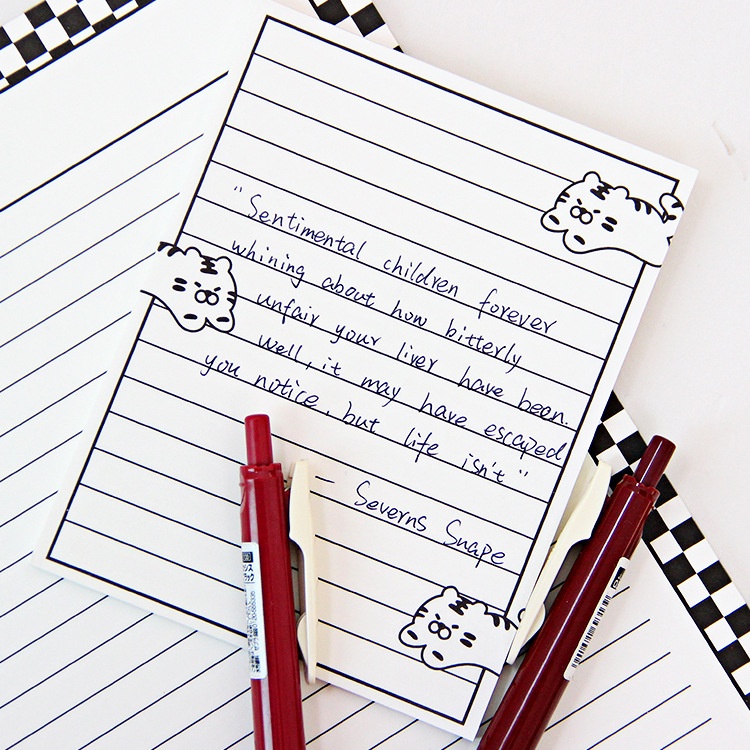 "Sentimental children forever
whining about how bitterly
unfair your liver have been.
Well, it may have escaped
you notice. but life isn't"
— Severns Snape